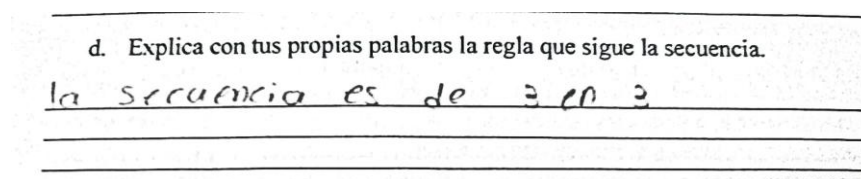 d. Explica con tus propias palabras la regla que sigue la secuencia.
la secuencia es de 3 en 3